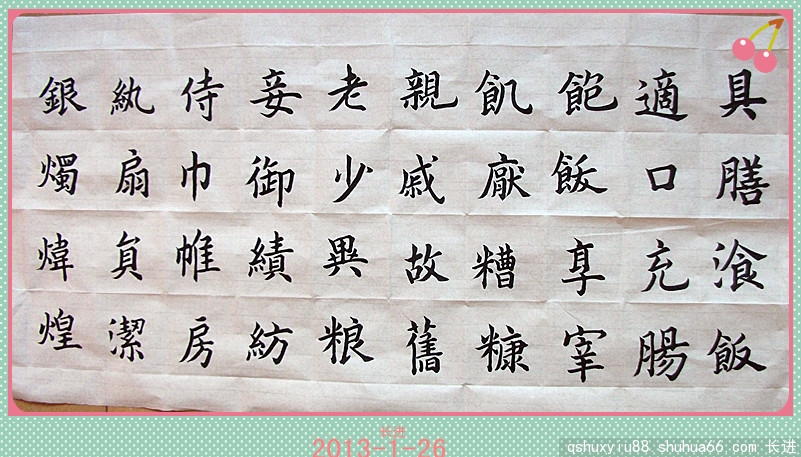 具膳飡飯
適口充腸
飽飯享宰
飢厭糟糠
親戚故舊
老少異粮
妾御績紡
侍巾帷房
紈扇員潔
銀燭煒煌
长进
2013-1-26
qshuxyiu88.shuhua66.com 长进